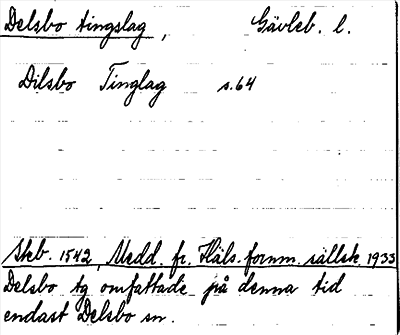 Delsbo tingslag, Gävleb. l.
Dilsbo Tinglag s. 64
Skb. 1542, Medd. fr. Häls. fornm. sällsk. 1933
Delsbo tg omfattade på denna tid
endast Delsbo sn.